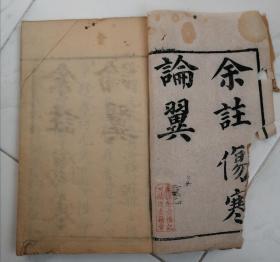 余註傷寒
論翼